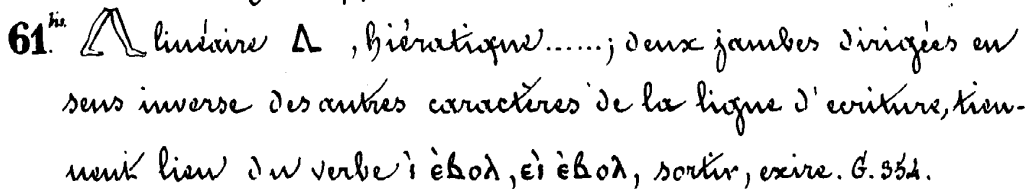 61 bis. 𓂽 linéaire 𐦂 , hiératique......; deux jambes dirigées en
sens inverse des autres caractères de la ligne d'ecriture, tien-
nent lieu du verbe ⲓ̀ ⲉ̀ⲃⲟⲗ, ⲉⲓ̀ ⲉ̀ⲃⲟⲗ, sortir, exire. G. 354.